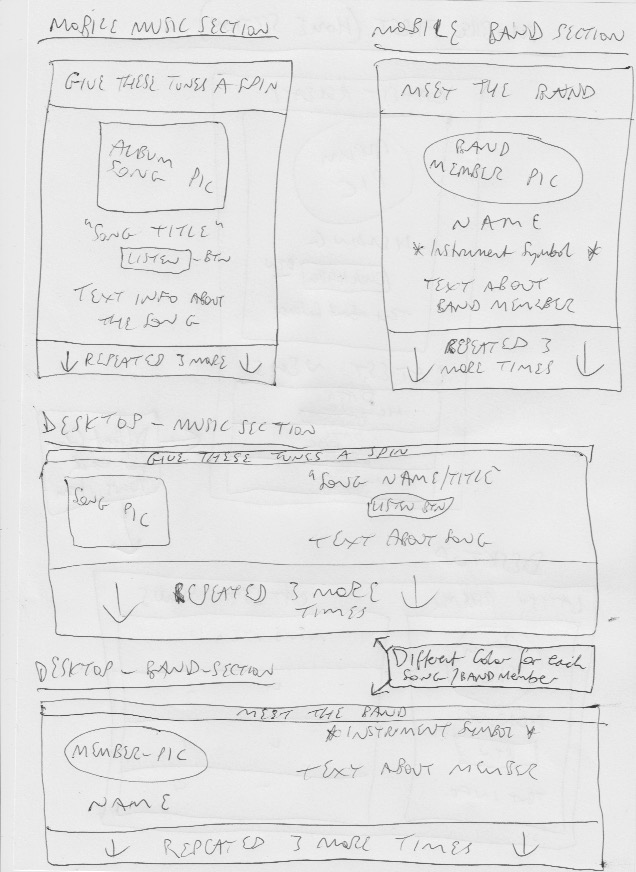 MOBILE MUSIC SECTION
GIVE THESE TUNES A SPIN
ALBUM
SONG PIC
"SONG TITLE"
LISTEN -BTN
TEXT INFO ABOUT
THE SONG
↓ REPEATED 3 MORE ↓
MOBILE BAND SECTION
MEET THE BAND
BAND
MEMBER PIC
NAME
* Instrument Symbol *
TEXT ABOUT
BAND MEMBER
↓ REPEATED 3 ↓
MORE TIMES
DESKTOP - MUSIC SECTION
GIVE THESE TUNES A SPIN
SONG PIC
"SONG NAME/TITLE
LISTEN BTN
TEXT ABOUT SONG
↓ REPEATED 3 MORE ↓
TIMES
Different Color for each
SONG/BAND Member
DESKTOP - BAND-SECTION
MEET THE BAND
MEMBER-PIC
NAME
* INSTRUMENT SYMBOL *
TEXT ABOUT MEMBER
↓ REPEATED 3 MORE TIMES ↓